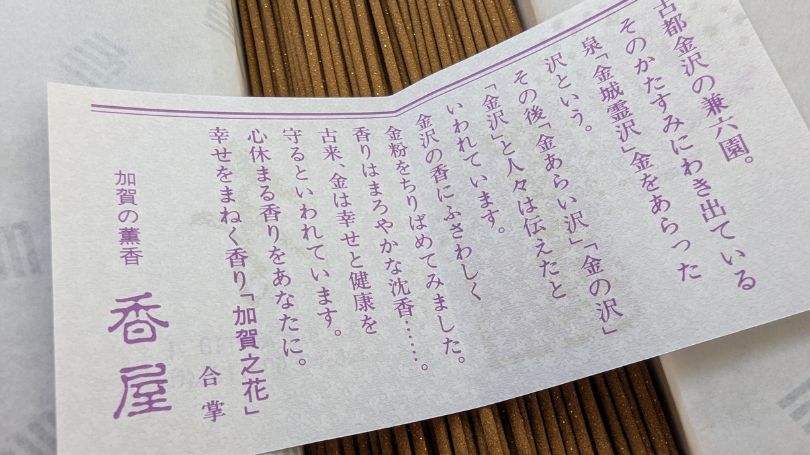 古都金沢の兼六園。
そのかたすみにわき出ている
泉「金城霊沢」金をあらった
沢という。
その後「金あらい沢」「金の沢」
「金沢」と人々は伝えたと
いわれています。
金沢の香にふさわしく
金粉をちりばめてみました。
香りはまろやかな沈香……。
古来、金は幸せと健康を
守るといわれています。
心休まる香りをあなたに。
幸せをまねく香り「加賀之花」
合掌
加賀の薫香
香屋